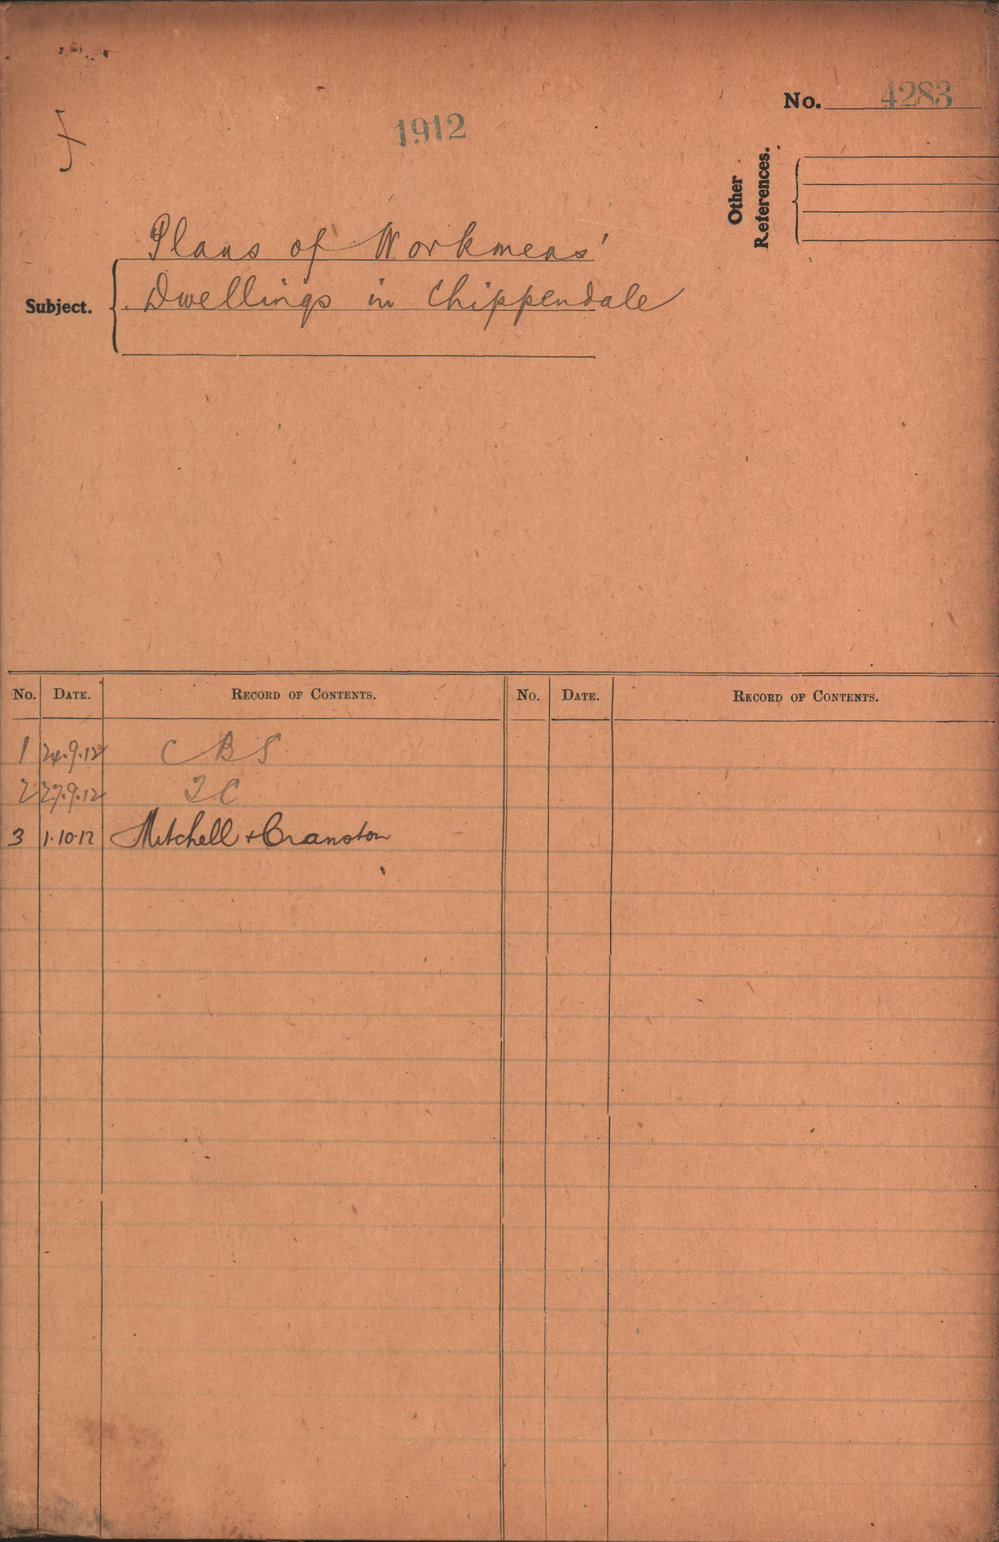 No. 4283
1912
Other
References.
Plans of Workmens'
Subject. Dwellings in Chippendale
No. DATE. RECORD OF CONTENTS. No. DATE. RECORD OF CONTENTS.
1 24.9.12 C B S
2 27.9.12 T C
3 1.10.12 Mitchell + Cranston